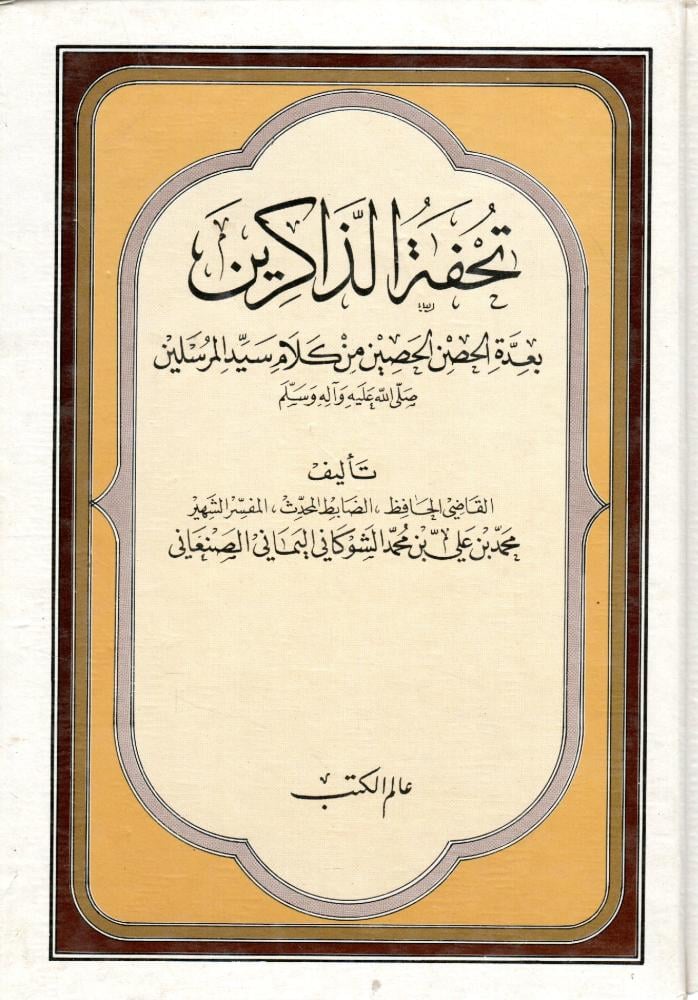 تُحْفَةُ الذَّاكِرِينَ
بعدَّة الحصن الحصين من كلام سيّد المرسلين
صلّى الله عليه وآله وسلّم
تأليف
القاضي الحافظ ، الضابط المحدّث ، المفسّر الشهير
محمّد بن علي بن محمّد الشوكاني اليماني الصنعاني
عالم الكتب